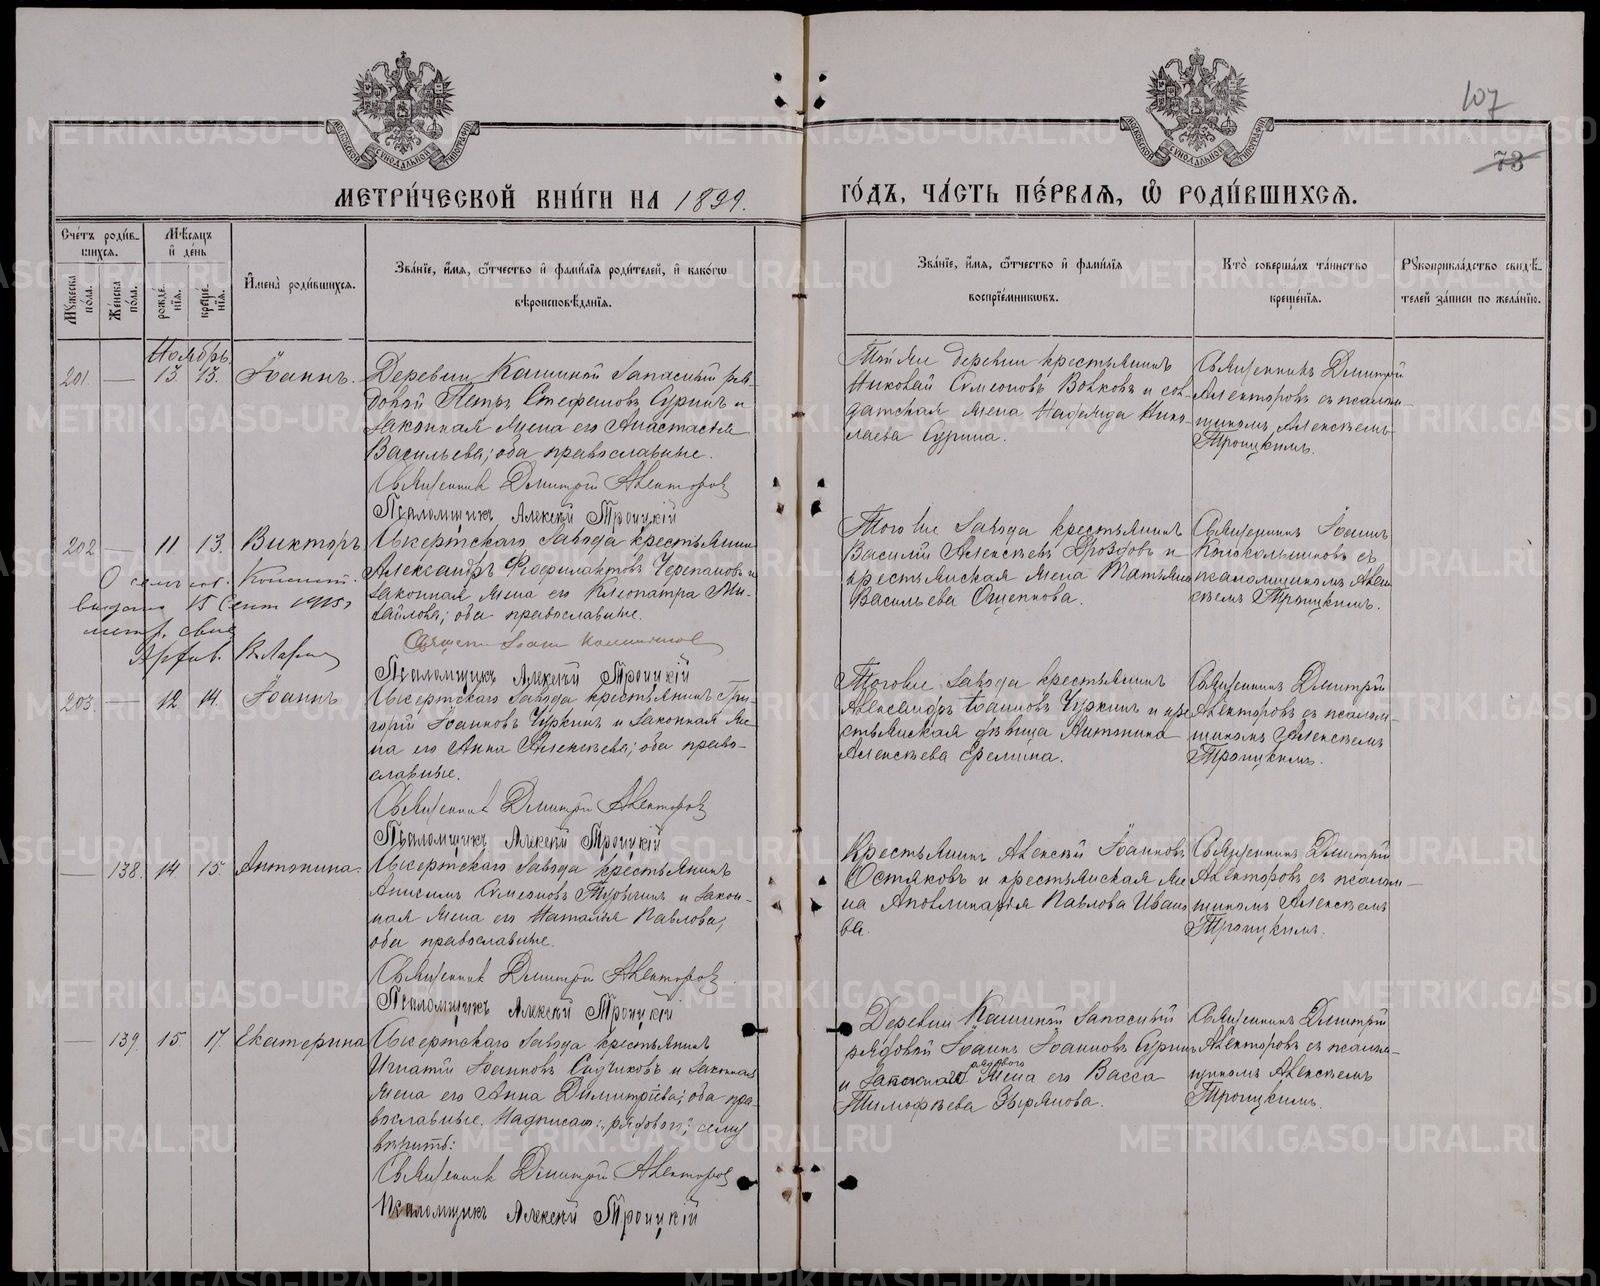 107
73
МОСКОВСКОЙ СѴНОДАЛЬНОЙ ТИПОГРАФІИ
МОСКОВСКОЙ СѴНОДАЛЬНОЙ ТИПОГРАФІИ
МЕТРИ́ЧЕСКОЙ КНИ́ГИ НА 1899.
ГО́ДЪ, ЧА́СТЬ ПЕ́РВАЯ, Ѡ҆ РОДИ́ВШИХСЯ.
Сче́тъ роди́вшихся.
Мꙋжеска по́ла.
Же́нска по́ла.
Мѣ́сяцъ и҆ де́нь
рожде́нїя.
креще́нїя.
И҆мена̀ роди́вшихся.
Зва́нїе, и҆́мя, ѻ҆́тчество и҆ фами́лїя роди́телей, и҆ како́гѡ
вѣроисповѣ́данїя.
Зва́нїе, и҆́мя, ѻ҆́тчество и҆ фами́лїя
воспрїе́мниковъ.
Кто̀ соверша́лъ та́инство
креще́нїя.
Рꙋкоприкла́дство свидѣ́-
телей за́писи по жела́нїю.
Ноябрь
201. — 13. 13. Іоаннъ.
Деревни Кашиной запасный ря-
довой Петръ Стефановъ Суринъ и
законная жена его Анастасія
Васильева; оба православные.
Священникъ Димитрій Авекторов
Псаломщикъ Алексѣй Троицкій
Той же деревни крестьянинъ
Николай Симеоновъ Волковъ и сол-
датская жена Надежда Нико-
лаева Сурина.
Священникъ Димитрій
Авекторовъ съ псалом-
щикомъ Алексѣемъ
Троицкимъ.
202 — 11 13. Викторъ
Сысертскаго завода крестьянинъ
Александръ Феофилактовъ Черепановъ и
законная жена его Клеопатра Ми-
хайлова; оба православные.
Священ. Іоан Колокольников
Псаломщикъ Алексѣй Троицкій
выдано 15 Сент 1915 г
метр. свид
Того же завода крестьянинъ
Василій Алексѣевъ Дроздовъ и
крестьянская жена Татьяна
Васильева Ощепкова.
Священникъ Іоаннъ
Колокольниковъ съ
псаломщикомъ Алек-
сѣемъ Троицкимъ.
203. — 12 14. Іоаннъ
Сысертскаго завода крестьянинъ Гри-
горій Іоанновъ Чуркинъ и законная же-
на его Анна Алексѣева; оба право-
славные.
Священникъ Димитрій Авекторов
Псаломщикъ Алексѣй Троицкій
Того же завода крестьянинъ
Александръ Іоанновъ Чуркинъ и кре-
стьянская дѣвица Антонина
Алексѣева Срелина.
Священникъ Димитрій
Авекторовъ съ псалом-
щикомъ Алексѣемъ
Троицкимъ.
— 138. 14 15. Антонина.
Сысертскаго завода крестьянинъ
Анисимъ Симеоновъ Турыгинъ и закон-
ная жена его Наталья Павлова;
оба православные.
Священникъ Димитрій Авекторов
Псаломщикъ Алексѣй Троицкій
Крестьянинъ Алексѣй Іоанновъ
Остяковъ и крестьянская же-
на Аполлинарія Павлова Ивано-
ва.
Священникъ Димитрій
Авекторовъ съ псалом-
щикомъ Алексѣемъ
Троицкимъ.
— 139. 15 17. Екатерина
Сысертскаго завода крестьянинъ
Игнатій Іоанновъ Садчиковъ и законная
жена его Анна Димитріева; оба пра-
вославные. Надписан: "рядового", сему
вѣрить:
Священникъ Димитрій Авекторов
Псаломщикъ Алексѣй Троицкій
Деревни Кашиной запасный
рядовой Іоаннъ Іоанновъ Суринъ
и запаснаго рядового жена его Васса
Тимофѣева Зырянова.
Священникъ Димитрій
Авекторовъ съ псалом-
щикомъ Алексѣемъ
Троицкимъ.
METRIKI.GASO-URAL.RU